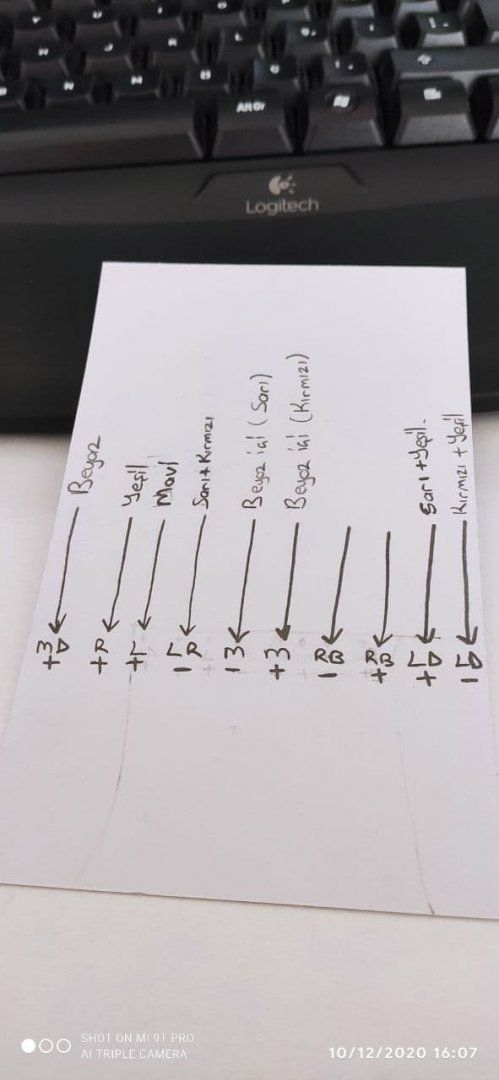 Beyaz 3D +
Yeşil R +
Mavi L +
Sarı + Kırmızı LR -
Beyaz içi (Sarı) 3 -
Beyaz içi (Kırmızı) 3 +
RB -
RB +
Sarı + Yeşil. LD +
Kırmızı + Yeşil LD -
Alt Gr
Logitech
SHOT ON MI 9T PRO
AI TRIPLE CAMERA
10/12/2020 16:07